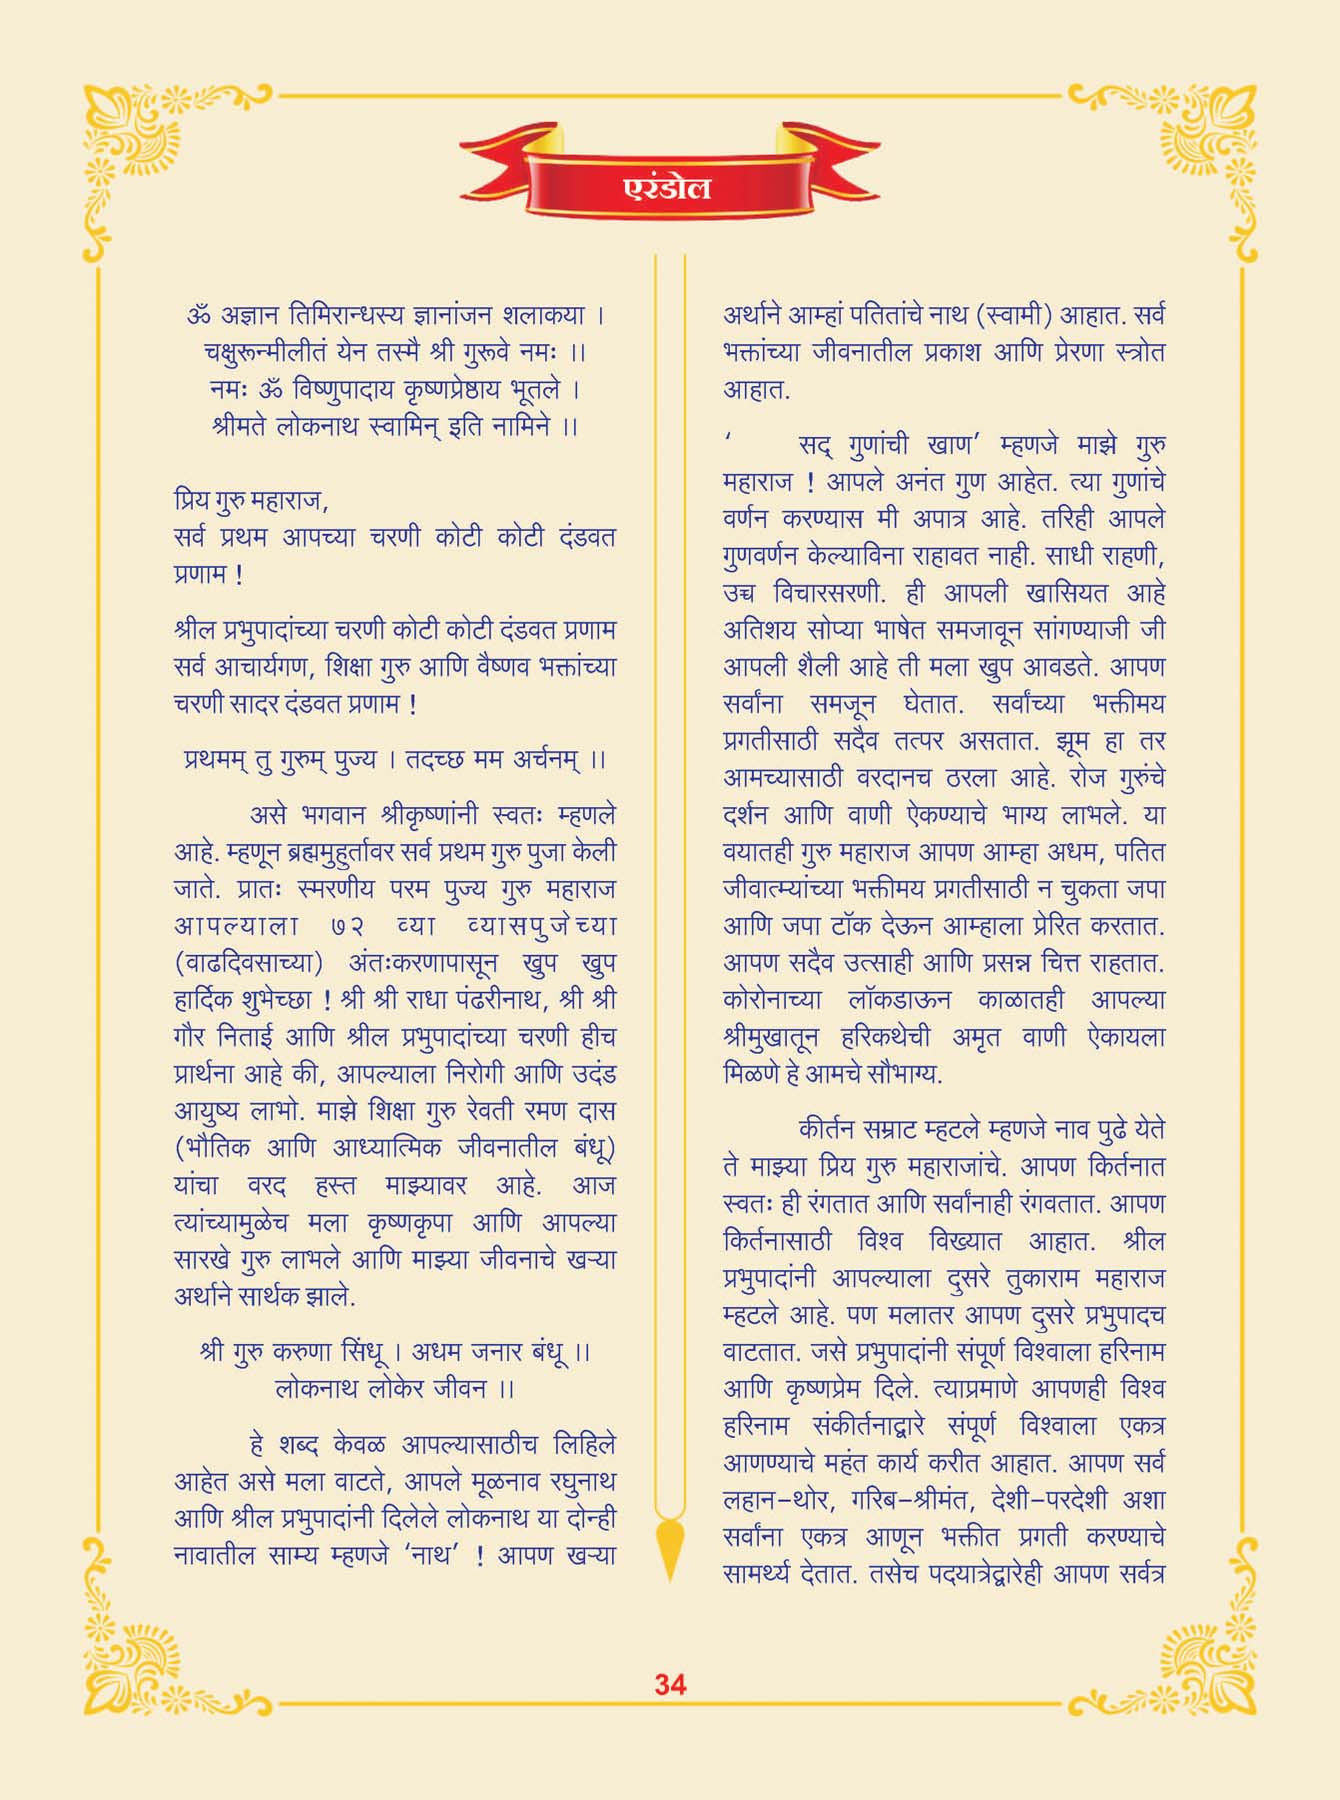 एरंडोल
ॐ अज्ञान तिमिरान्धस्य ज्ञानांजन शलाकया ।
चक्षुरून्मीलीतं येन तस्मै श्री गुरूवे नमः ।।
नमः ॐ विष्णुपादाय कृष्णप्रेष्ठाय भूतले ।
श्रीमते लोकनाथ स्वामिन् इति नामिने ।।
प्रिय गुरु महाराज,
सर्व प्रथम आपच्या चरणी कोटी कोटी दंडवत
प्रणाम !
श्रील प्रभुपादांच्या चरणी कोटी कोटी दंडवत प्रणाम
सर्व आचार्यगण, शिक्षा गुरु आणि वैष्णव भक्तांच्या
चरणी सादर दंडवत प्रणाम !
प्रथमम् तु गुरुम् पुज्य । तदच्छ मम अर्चनम् ।।
असे भगवान श्रीकृष्णांनी स्वतः म्हणले
आहे. म्हणून ब्रह्ममुहुर्तावर सर्व प्रथम गुरु पुजा केली
जाते. प्रातः स्मरणीय परम पुज्य गुरु महाराज
आपल्याला ७२ व्या व्यासपुजेच्या
(वाढदिवसाच्या) अंतःकरणापासून खुप खुप
हार्दिक शुभेच्छा ! श्री श्री राधा पंढरीनाथ, श्री श्री
गौर निताई आणि श्रील प्रभुपादांच्या चरणी हीच
प्रार्थना आहे की, आपल्याला निरोगी आणि उदंड
आयुष्य लाभो. माझे शिक्षा गुरु रेवती रमण दास
(भौतिक आणि आध्यात्मिक जीवनातील बंधू)
यांचा वरद हस्त माझ्यावर आहे. आज
त्यांच्यामुळेच मला कृष्णकृपा आणि आपल्या
सारखे गुरु लाभले आणि माझ्या जीवनाचे खऱ्या
अर्थाने सार्थक झाले.
श्री गुरु करुणा सिंधू । अधम जनार बंधू ।।
लोकनाथ लोकेर जीवन ।।
हे शब्द केवळ आपल्यासाठीच लिहिले
आहेत असे मला वाटते, आपले मूळनाव रघुनाथ
आणि श्रील प्रभुपादांनी दिलेले लोकनाथ या दोन्ही
नावातील साम्य म्हणजे ‘नाथ’ ! आपण खऱ्या
अर्थाने आम्हां पतितांचे नाथ (स्वामी) आहात. सर्व
भक्तांच्या जीवनातील प्रकाश आणि प्रेरणा स्त्रोत
आहात.
‘ सद् गुणांची खाण’ म्हणजे माझे गुरु
महाराज ! आपले अनंत गुण आहेत. त्या गुणांचे
वर्णन करण्यास मी अपात्र आहे. तरिही आपले
गुणवर्णन केल्याविना राहावत नाही. साधी राहणी,
उच्च विचारसरणी. ही आपली खासियत आहे
अतिशय सोप्या भाषेत समजावून सांगण्याजी जी
आपली शैली आहे ती मला खुप आवडते. आपण
सर्वांना समजून घेतात. सर्वांच्या भक्तीमय
प्रगतीसाठी सदैव तत्पर असतात. झूम हा तर
आमच्यासाठी वरदानच ठरला आहे. रोज गुरुंचे
दर्शन आणि वाणी ऐकण्याचे भाग्य लाभले. या
वयातही गुरु महाराज आपण आम्हा अधम, पतित
जीवात्म्यांच्या भक्तीमय प्रगतीसाठी न चुकता जपा
आणि जपा टॉक देऊन आम्हाला प्रेरित करतात.
आपण सदैव उत्साही आणि प्रसन्न चित्त राहतात.
कोरोनाच्या लॉकडाऊन काळातही आपल्या
श्रीमुखातून हरिकथेची अमृत वाणी ऐकायला
मिळणे हे आमचे सौभाग्य.
कीर्तन सम्राट म्हटले म्हणजे नाव पुढे येते
ते माझ्या प्रिय गुरु महाराजांचे. आपण किर्तनात
स्वतः ही रंगतात आणि सर्वांनाही रंगवतात. आपण
किर्तनासाठी विश्व विख्यात आहात. श्रील
प्रभुपादांनी आपल्याला दुसरे तुकाराम महाराज
म्हटले आहे. पण मलातर आपण दुसरे प्रभुपादच
वाटतात. जसे प्रभुपादांनी संपूर्ण विश्वाला हरिनाम
आणि कृष्णप्रेम दिले. त्याप्रमाणे आपणही विश्व
हरिनाम संकीर्तनाद्वारे संपूर्ण विश्वाला एकत्र
आणण्याचे महंत कार्य करीत आहात. आपण सर्व
लहान–थोर, गरिब–श्रीमंत, देशी–परदेशी अशा
सर्वांना एकत्र आणून भक्तीत प्रगती करण्याचे
सामर्थ्य देतात. तसेच पदयात्रेद्वारेही आपण सर्वत्र
34